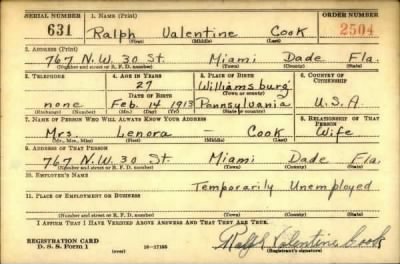 SERIAL NUMBER 1. NAME (Print) ORDER NUMBER
631 Ralph Valentine Cook 2504
(First) (Middle) (Last)
2. ADDRESS (Print)
767 N.W. 30 St. Miami Dade Fla.
(Number and street or R. F. D. number) (Town) (County) (State)
3. TELEPHONE 4. AGE IN YEARS 5. PLACE OF BIRTH 6. COUNTRY OF CITIZENSHIP
27 Williamsburg
DATE OF BIRTH (Town or county)
none Feb. 14 1913 Pennsylvania U.S.A.
(Exchange) (No.) (Mo.) (Day) (Yr.) (State or country)
7. NAME OF PERSON WHO WILL ALWAYS KNOW YOUR ADDRESS 8. RELATIONSHIP OF THAT PERSON
Mrs. Lenora — Cook Wife
(Mr., Mrs., Miss) (First) (Middle) (Last)
9. ADDRESS OF THAT PERSON
767 N.W. 30 St. Miami Dade Fla.
(Number and street or R. F. D. number) (Town) (County) (State)
10. EMPLOYER'S NAME
Temporarily Unemployed
11. PLACE OF EMPLOYMENT OR BUSINESS
(Number and street or R. F. D. number) (Town) (County) (State)
I AFFIRM THAT I HAVE VERIFIED ABOVE ANSWERS AND THAT THEY ARE TRUE.
REGISTRATION CARD
D. S. S. Form 1 (over) 16-17105 Ralph Valentine Cook
(Registrant's signature)